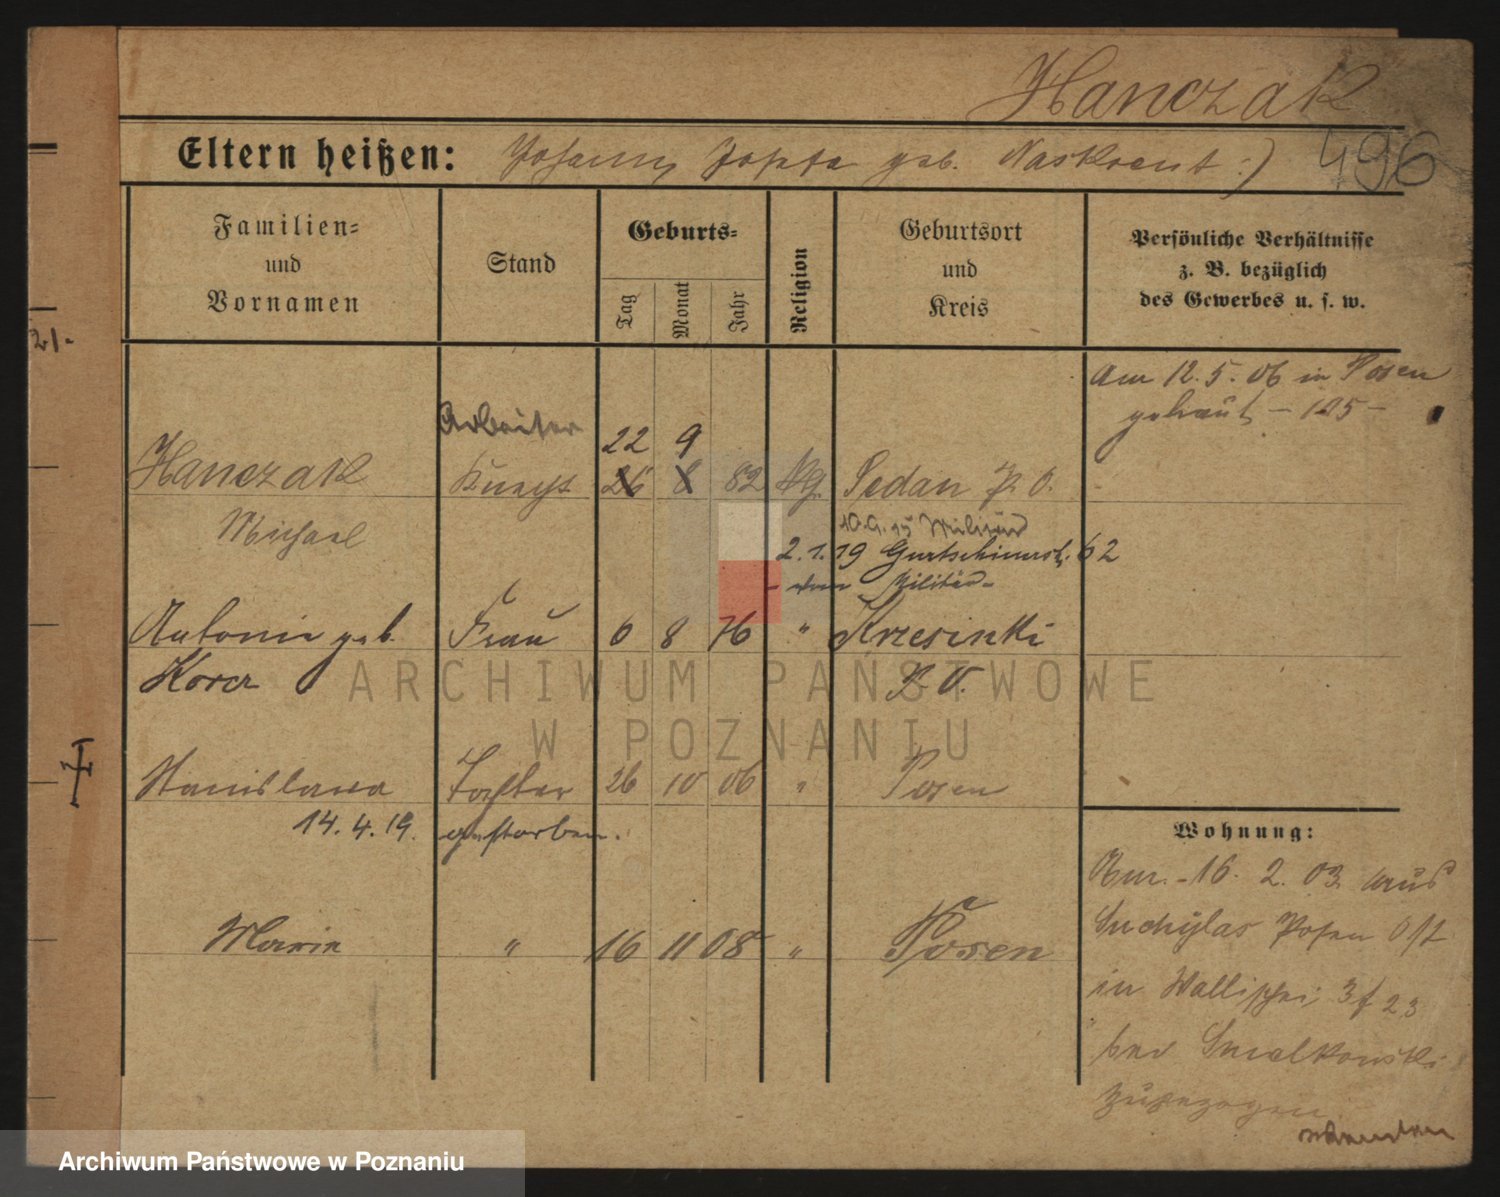 Hanczak
Eltern heißen: Johann, Josefa geb. Naskrent :)
496
Familien-
und
Vornamen
Stand
Geburts-
Tag
Monat
Jahr
Religion
Geburtsort
und
Kreis
Persönliche Verhältnisse
z. B. bezüglich
des Gewerbes u. s. w.
21.
Am 12. 5. 06 in Posen
getraut - 125 -
Arbeiter
22 9
Hanczak Knecht 26 8 82 kg. Sedan P. O.
Michael
10.9.15 Militär
2.1.19 Gurtschinerstr. 62
- vom Militär -
Antonie geb. Frau 6 8 76 " Krzesinki
P. O.
ARCHIWUM PAŃSTWOWE
W POZNANIU
Stanislawa Tochter 26 10 06 " Posen
14. 4. 19. gestorben.
Maria " 16 11 08 " Posen
Wohnung:
Am 16. 2. 03 aus
Suchylas Posen Ost
in Wallischei 3 f 23
bei Smolkowski
zugezogen
Archiwum Państwowe w Poznaniu